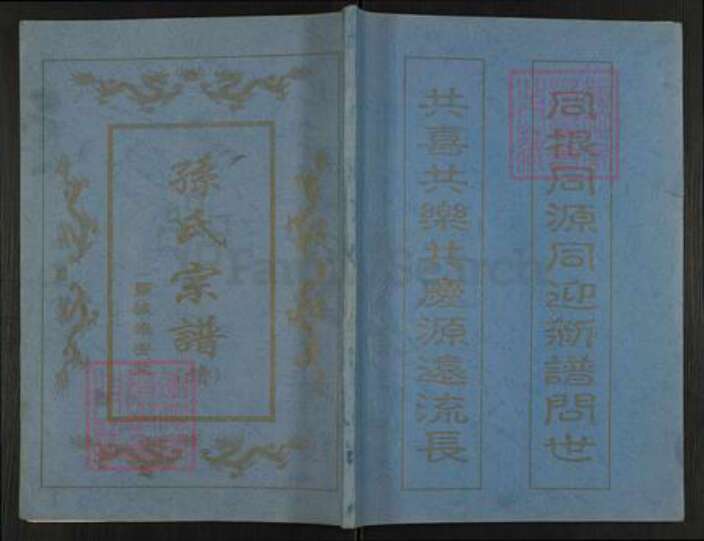 同根同源同迎新譜問世
共喜共樂共慶源遠流長
孫氏宗譜
(續)
FamilySearch